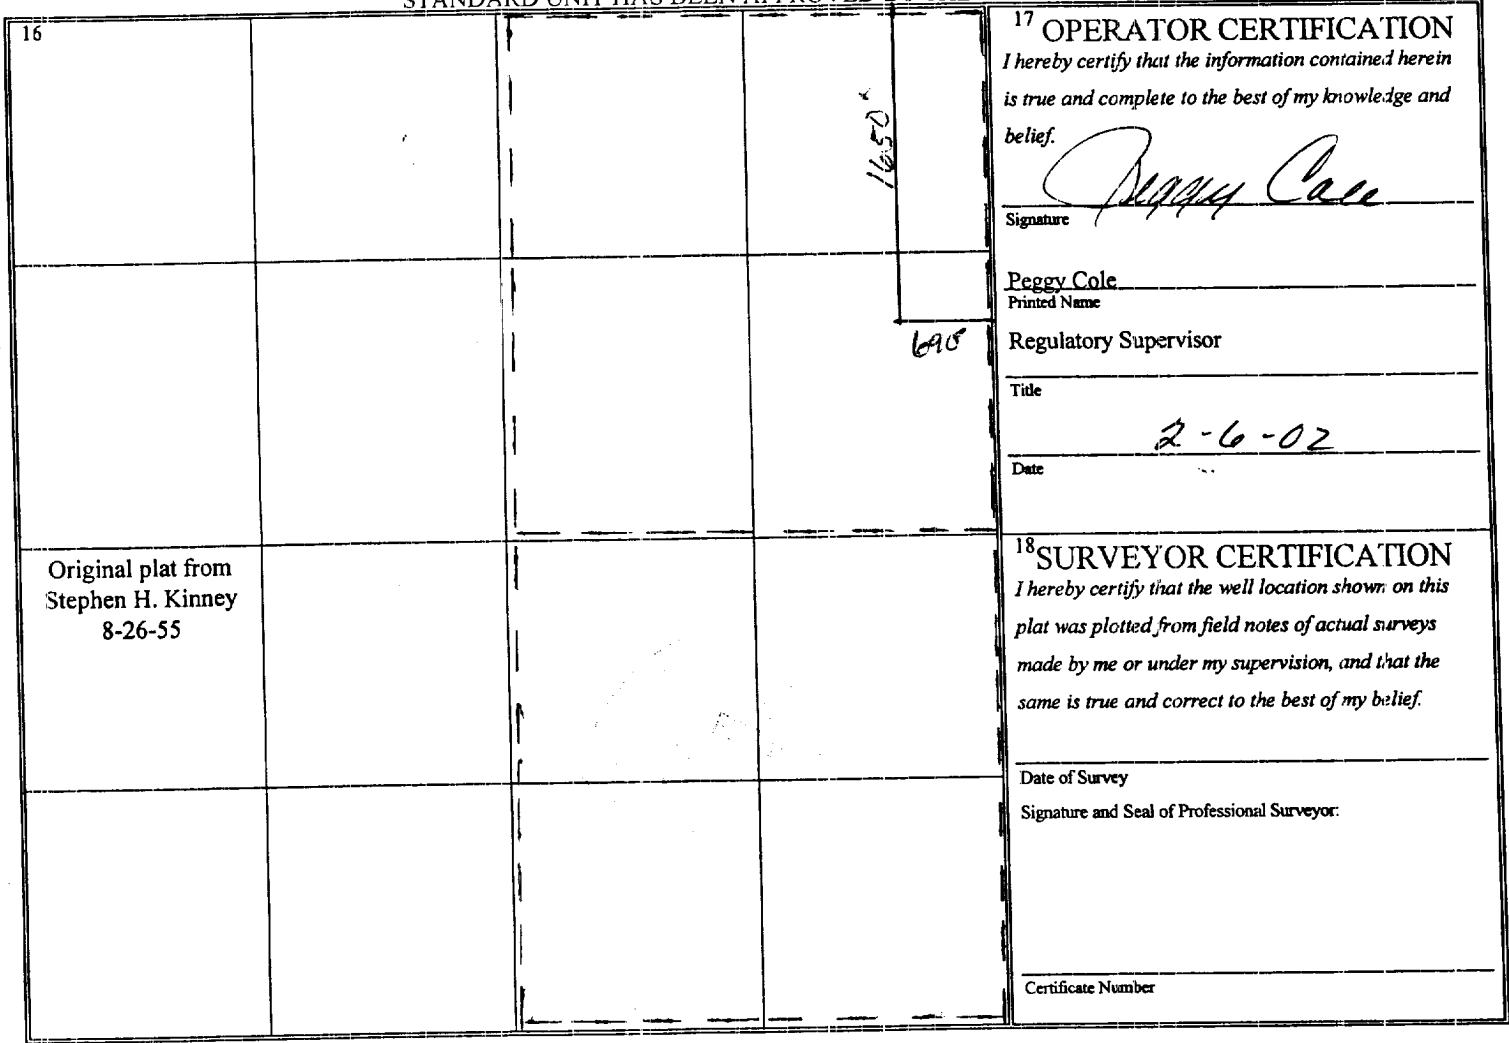 STANDARD UNIT HAS BEEN APPROVED
16
1650'
690
Original plat from
Stephen H. Kinney
8-26-55
17 OPERATOR CERTIFICATION
I hereby certify that the information contained herein
is true and complete to the best of my knowledge and
belief.
Peggy Cole
Signature
Peggy Cole
Printed Name
Regulatory Supervisor
Title
2-6-02
Date
18 SURVEYOR CERTIFICATION
I hereby certify that the well location shown on this
plat was plotted from field notes of actual surveys
made by me or under my supervision, and that the
same is true and correct to the best of my belief.
Date of Survey
Signature and Seal of Professional Surveyor:
Certificate Number